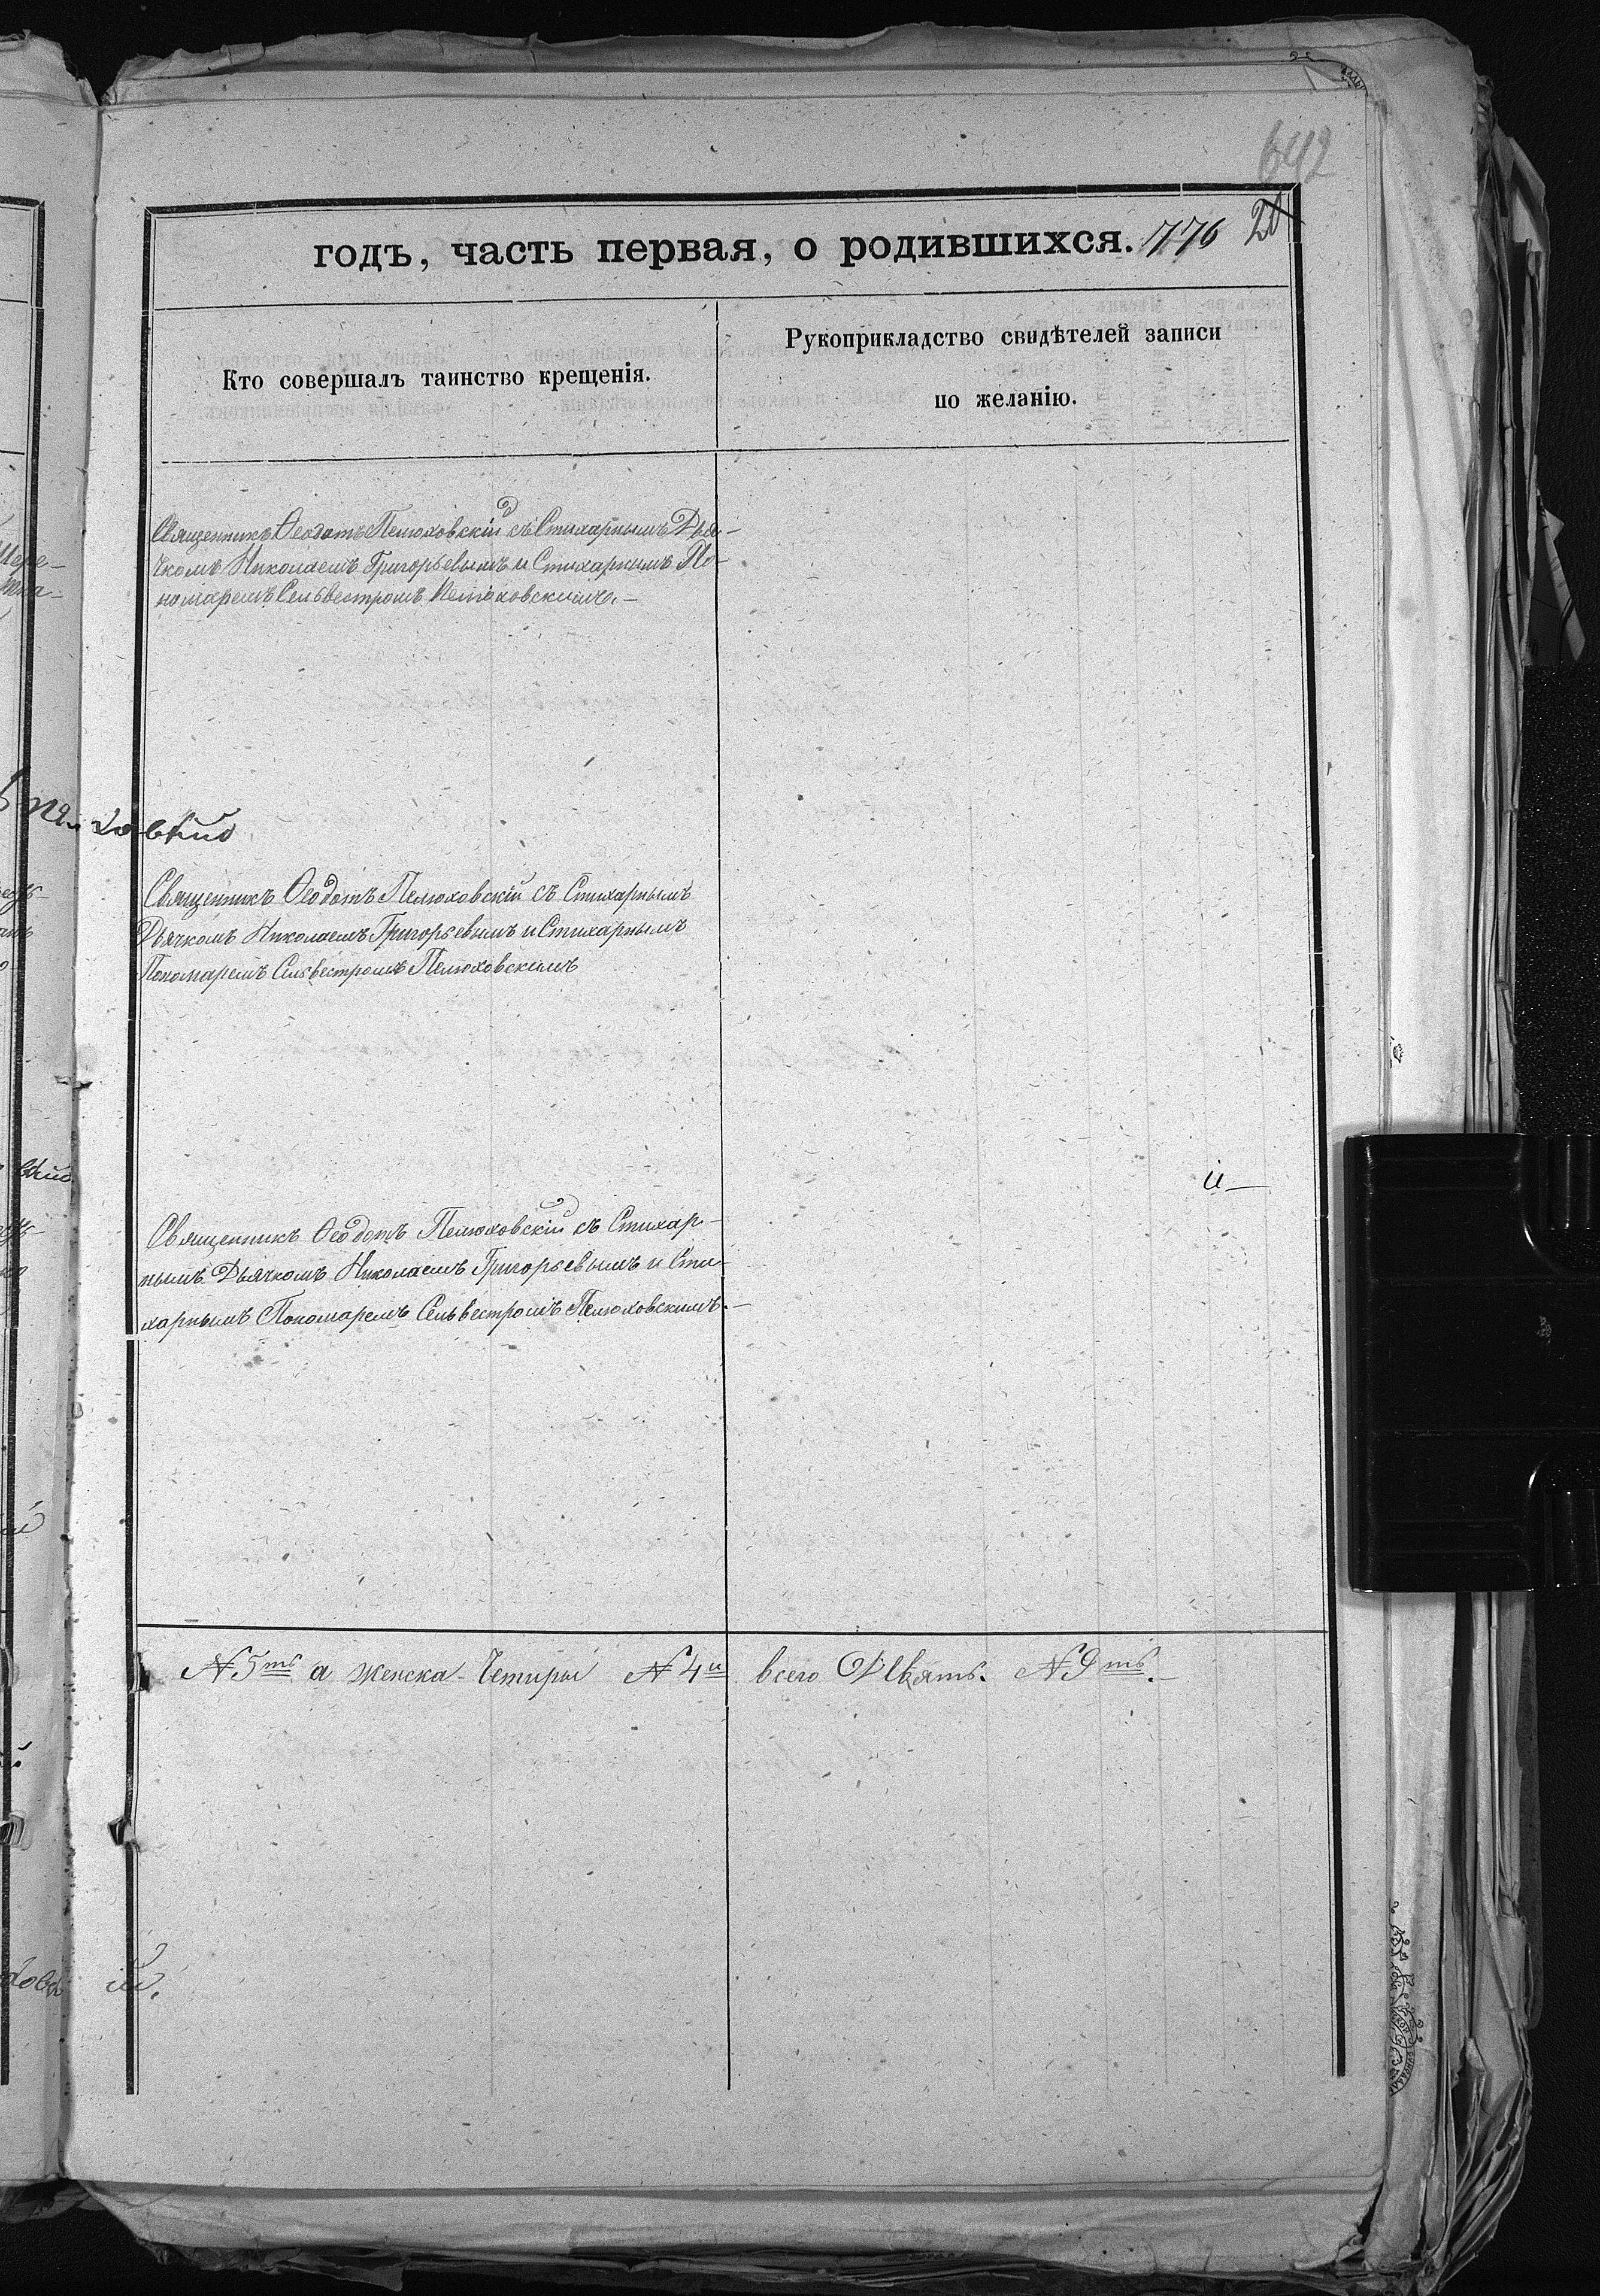 642
годъ, часть первая, о родившихся. 1776 20
Кто совершалъ таинство крещенія.
Рукоприкладство свидѣтелей записи
по желанію.
Священникъ Ѳеодотъ Пелюховскій съ Стихарнымъ Дья-
чкомъ Николаемъ Григорьевымъ и Стихарнымъ По-
номаремъ Сельвестромъ Пелюховскимъ.-
Священникъ Ѳеодотъ Пелюховскій съ Стихарнымъ
Дьячкомъ Николаемъ Григорьевымъ и Стихарнымъ
Пономаремъ Сельвестромъ Пелюховскимъ
Священникъ Ѳеодотъ Пелюховскій съ Стихар-
нымъ Дьячкомъ Николаемъ Григорьевымъ и Сти-
харнымъ Пономаремъ Сельвестромъ Пелюховскимъ.-
й
№ 5ть а женска Четыры № 4и всего Девять. № 9ть.